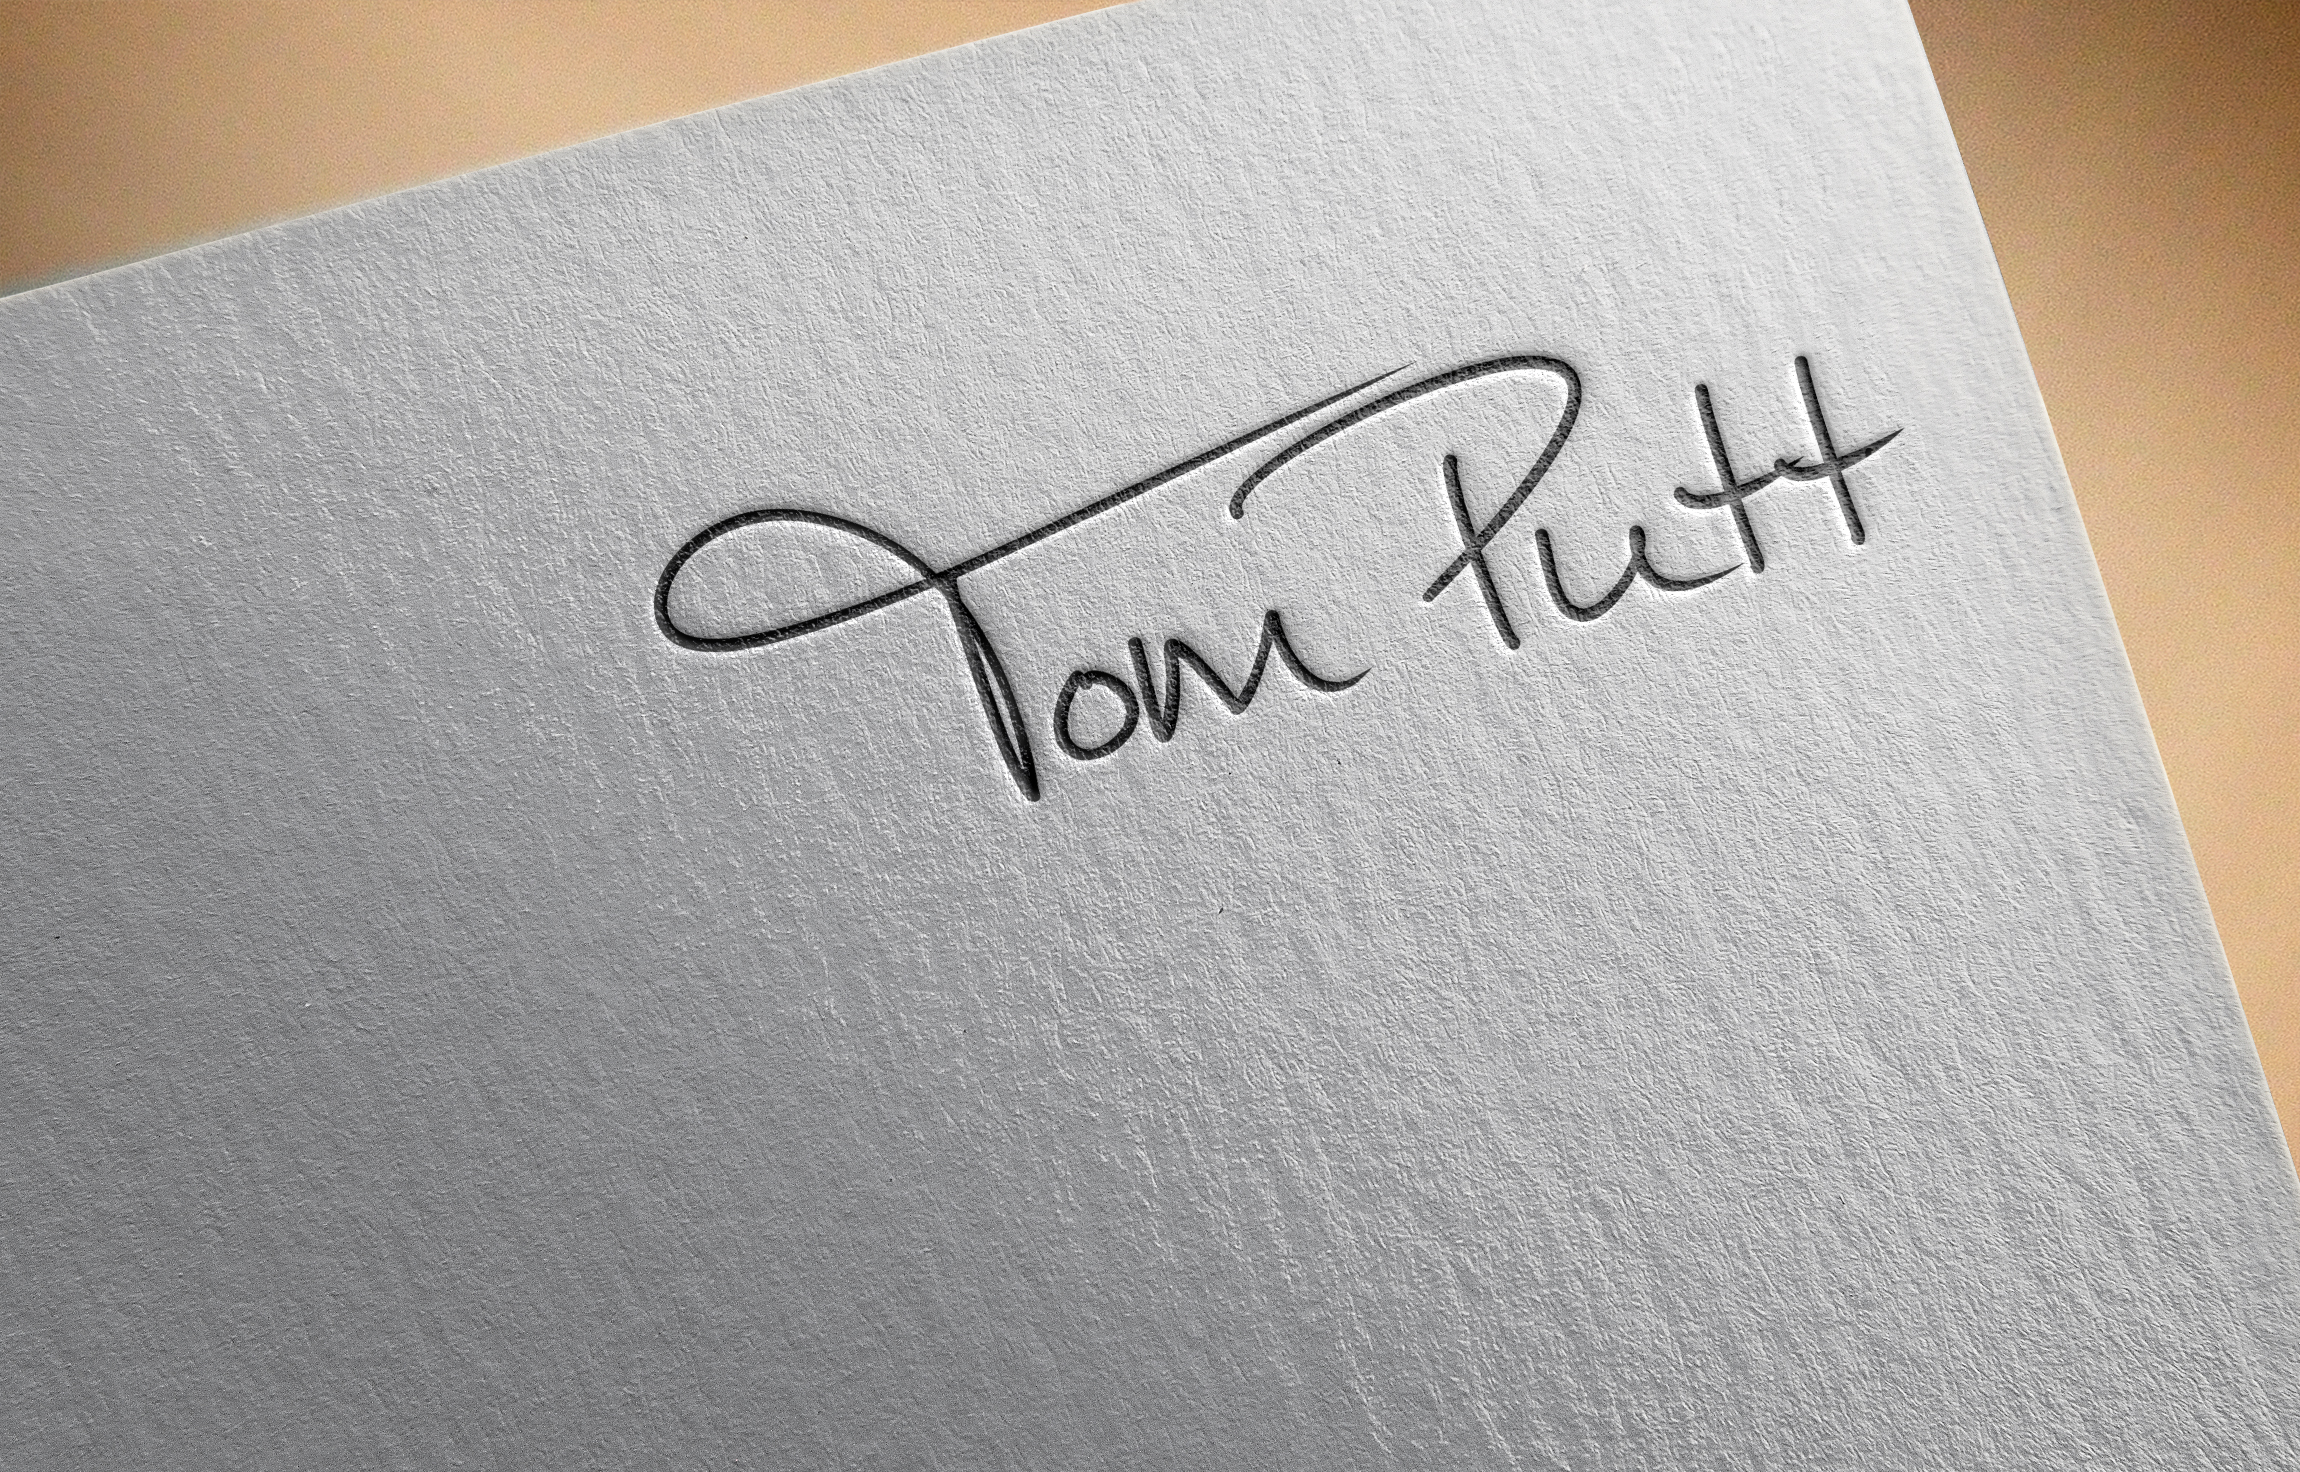 Tom Putt